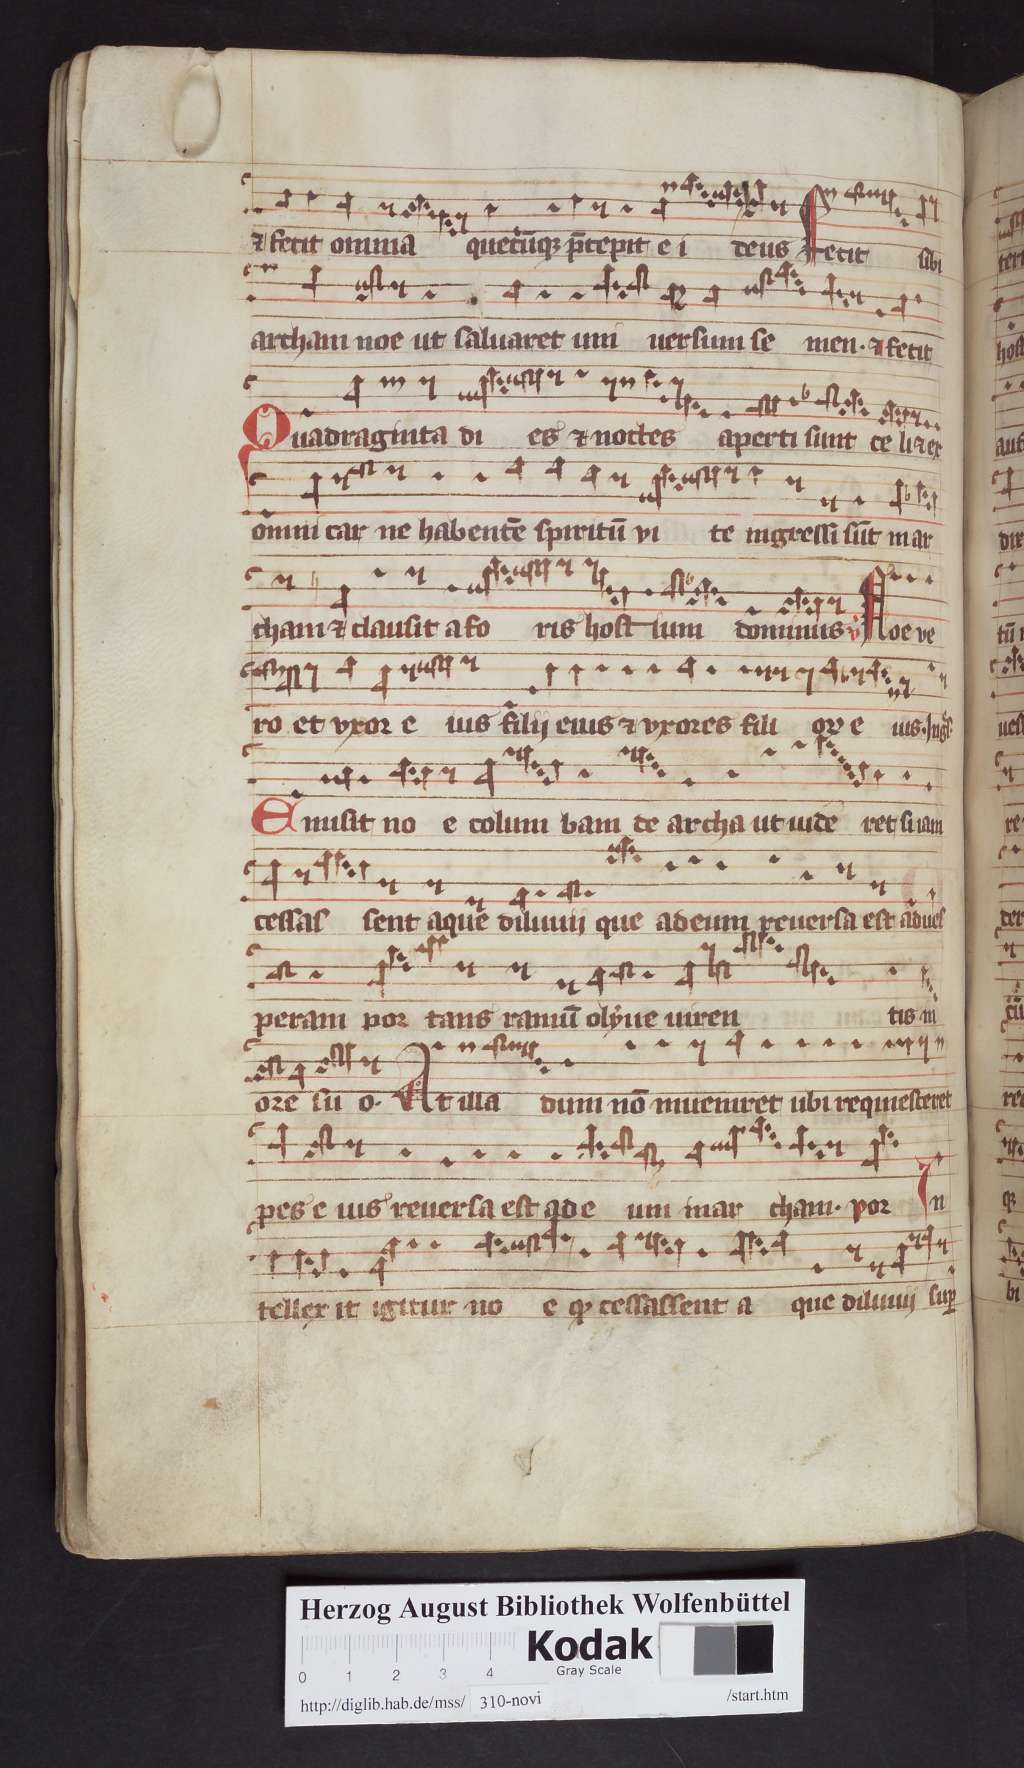 ⁊ fecit omnia quecūqꝫ p̄cepit e i deus Fecit sibi
archam noe ut saluaret uni uersum se men · ⁊ fecit
Quadraginta di es ⁊ noctes aperti sunt ce li ⁊ ex
omni car ne habentē spiritū vi te ingressi sūt in ar
cham ⁊ clausit a fo ris host ium dominus ℣ Noe ve
ro et vxor e ius filij eius ⁊ vxores fili oꝝ e ius ·
Emisit no e colum bam de archa ut uide ret si iam
cessas sent aque diluuij que ad eum reuersa est ad ues
peram por tans ramū olyue uiren tis in
ore su o · At illa dum nō inueniret ubi requiesceret
pes e ius reuersa est ad e um in ar cham · por In
tellex it igitur no e cessassent a que diluuij
Herzog August Bibliothek Wolfenbüttel
Kodak
Gray Scale
0 1 2 3 4
http://diglib.hab.de/mss/ 310-novi /start.htm